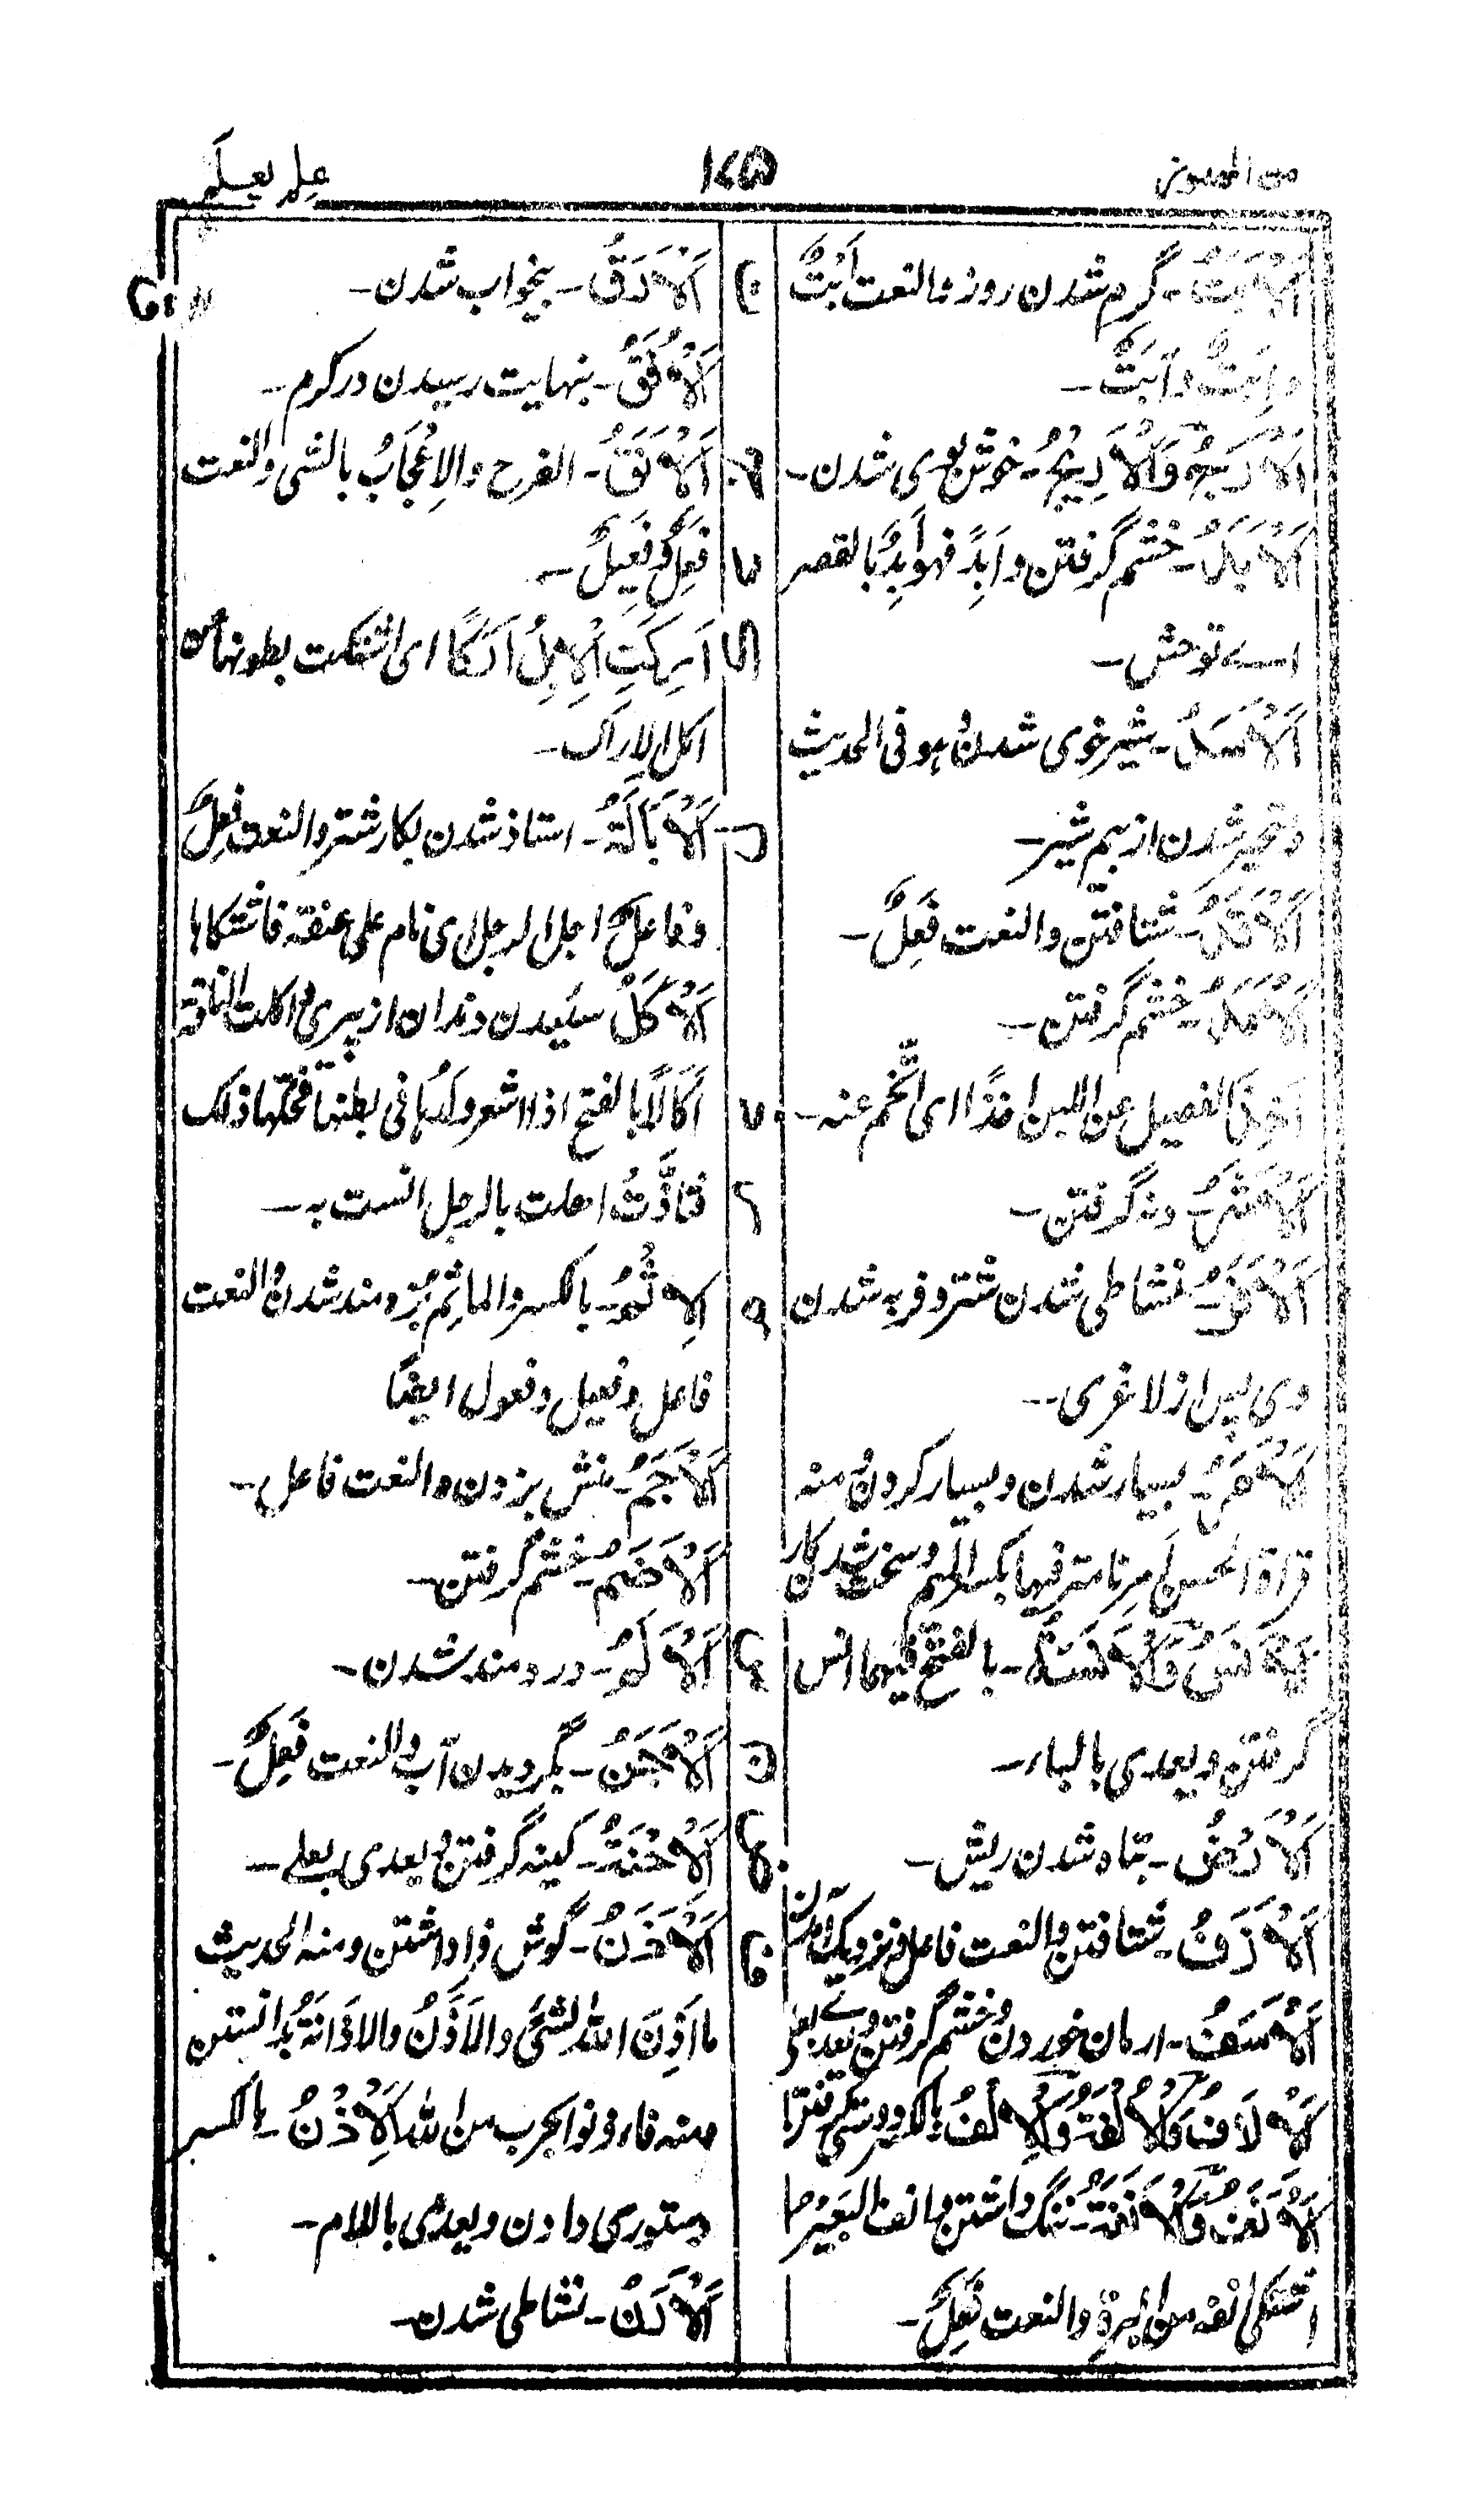 من المهموز
۱۷۵
علم یعلم
اَلْاَبْتُ۔ گرم شدن روز والنعت اَبْتٌ
واَبِتٌ وآبِتٌ۔
اَلْاَرَجُ وَالْاَرِیْجُ۔ خوش بوی شدن۔
اَلْاَبَدُ۔ خشم گرفتن واَبِدَ فهو اَبِدٌ بالقصر
اے توحش۔
اَلْاَسَدُ۔ شیر خوی شدن وهو فی الحدیث
ومتحیر شدن از بیم شیر۔
اَلْاَفَدُ۔ شتافتن والنعت فَعِلٌ۔
اَلْاَمَدُ۔ خشم گرفتن۔
اَخِذَ الفصیل عن اللبن اخذًا ای اتَّخم عنه۔
اَلْاَشَرُ۔ دنه گرفتن۔
نشاطی شدن شتر و فربه شدن
وی پس از لاغری۔
اَلْاَمَرُ۔ بسیار شدن و بسیار کردن ومنه
قراءة الحسن اَمِرنا مترفیها بکسر المیم وسخت شدن کار
اَلْاَنَسُ وَالْاَنَسَةُ۔ بالفتح فیهما انس
گرفتن ویعدی بالباء۔
اَلْاَرَضُ۔ تباه شدن ریش۔
اَلْاَزَفُ۔ شتافتن والنعت فاعل ونزدیک آمدن
اَلْاَسَفُ۔ ارمان خوردن وخشم گرفتن ویعدی بعلی
اَلْاِلَافُ وَالْاُلْفَةُ وَالْاِلْفُ بالکسر دوستی گرفتن با
اَلْاَنَفُ وَالْاَنَفَةُ۔ ننگ داشتن وانف البَعِیْرُ
اشتکی انفه من البرة والنعت فَعِلٌ۔
ق
اَلْاَرَقُ۔ بیخواب شدن۔
اَلْاَفَقُ۔ بنهایت رسیدن در کرم۔
اَلْاَنَقُ۔ الفرح والاِعْجَابُ بالشی والنعت
فَعِلٌ وفَعِیلٌ۔
اَرِکَتِ الْاِبِلُ اَرَکًا ای اشتکت بطونها من
اکل الاراک۔
اَلْاَبَالَةُ۔ استاذ شدن بکار شتر والنعت فَعِلٌ
وفاعلٌ اجل الرجل ای نام علی عنقه فاشتکاها
اَلْاَکَلُ سائیدن دندان از پیری واکلت الناقة
اَکَالًا بالفتح اذا اشعر ولدُها فی بطنها فحکّها ذلک
فتاذَّت اهلت بالرجل انست به۔
اَلِاثْمُ۔ بالکسر والماثِم بزه مند شدن والنعت
فاعل وفعیل وفعول ایضًا
اَلْاَجَمُ۔ منش بزدن والنعت فاعل۔
اَلْاَضَمُ۔ خشم گرفتن۔
اَلْاَلَمُ۔ دردمند شدن۔
اَلْاَجَنُ۔ بگردیدن آب والنعت فَعِلٌ۔
اَلْاِحْنَةُ۔ کینه گرفتن ویعدی بعلے۔
اَلْاَذَنُ۔ گوش فرا داشتن ومنه الحدیث
ما اَذِنَ اللّٰه لشیءٍ والاَذَنُ والاَذَانَةُ بدانستن
ومنه فاءذنوا بحرب من اللّٰه اَلْاِذْنُ۔ بالکسر
دستوری دادن ویعدی باللام۔
اَلْاَرَنُ۔ نشاطی شدن۔